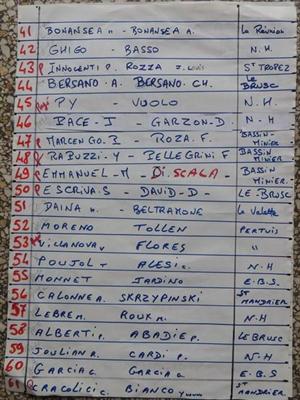 41 BONANSEA M - BONANSEA A. La Réunion
42 GHIGO - BASSO N.H.
43 P INNOCENTI P. ROZZA J. LOUIS ST TROPEZ
44 BERSANO A. BERSANO CH. LE BRUSC
45 PY - VUOLO N.H.
46 BACE-J - GARZON-D. N-H
47 P MARCENGO.B - ROZA.F. BASSIN-MINIER
48 RABUZZI-Y - PELLEGRINI F BASSIN MINIER
49 P EMMANUEL-M - Di SCALA - BASSIN MINIER.
50 P ESCRIVA.S - DAVID-D - LE-BRUSC
51 DAINA M. - BELTRAMONE La Valette
52 MORENO TOLLEN PERTUIS
53 VILLANOVA FLORES "
54 POUJOL T ALESI C. N-H
55 MONNET JARDINO E.B.S
56 CALONNE A. SKRZYPINSKI ST MANDRIER
57 LEBRE M. ROUX M. N.H
58 ALBERTI P. ABADIE P. LE BRUSC
59 JOULIAN R. CARDI P. N-H
60 GARCIA C. GARCIA G E.B.S
61 CRACOLICI C. BIANCO ST MANDRIER